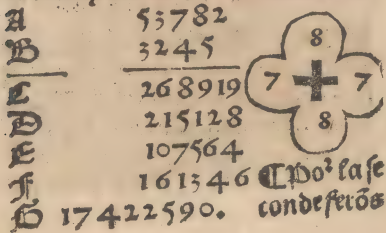 A 53782
B 3245
C 268919
D 215128
E 107564
F 161346
G 17422590.
8
7 + 7
8
¶Por la se
conde ferōs